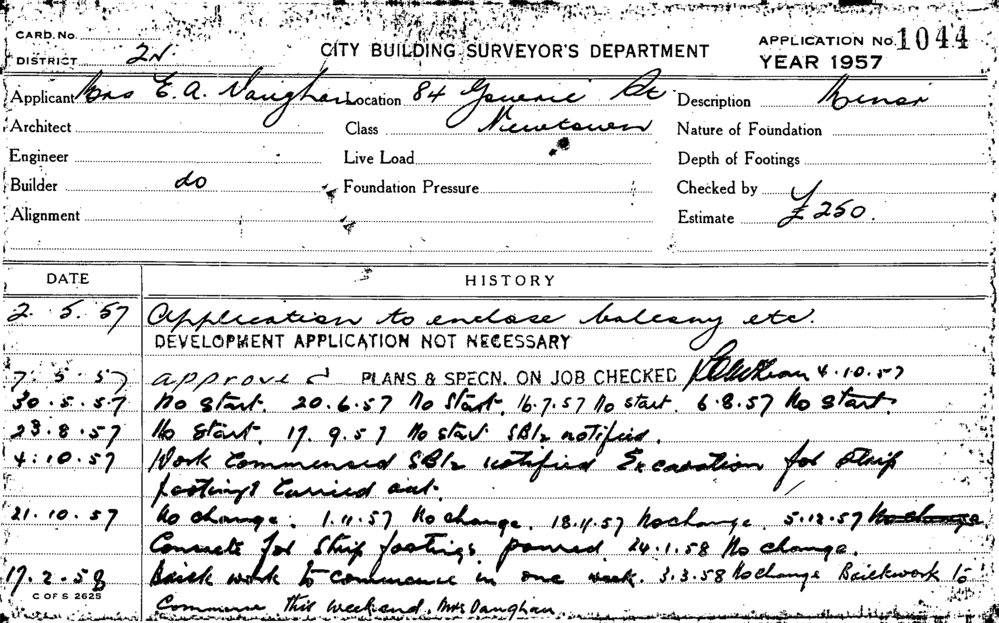 CARD. No.
DISTRICT 2N
CITY BUILDING SURVEYOR'S DEPARTMENT
APPLICATION No. 1044
YEAR 1957
Applicant Mrs E. A. Vaughan Location 84 Description Minor
Architect Class Newtown Nature of Foundation
Engineer Live Load Depth of Footings
Builder do Foundation Pressure Checked by
Alignment Estimate £250.
DATE HISTORY
2. 5. 57 Application to enclose balcony etc.
DEVELOPMENT APPLICATION NOT NECESSARY
7. 5. 57 approved PLANS & SPECN. ON JOB CHECKED 4.10.57
30.5.57 No Start. 20.6.57 No Start. 16.7.57 No start. 6.8.57 No start.
23.8.57 No Start. 17.9.57 No start SBI2 notified.
4.10.57 Work Commenced SBI2 notified Excavation for strip
footings Carried out.
21.10.57 No change. 1.11.57 No change. 18.11.57 No change. 5.12.57 No change
Concrete for Strip footings poured. 24.1.58 No change.
17.2.58 Brick work to commence in one week. 3.3.58 No change Brickwork to
C OF S 2625
Commence this weekend. Mrs Vaughan